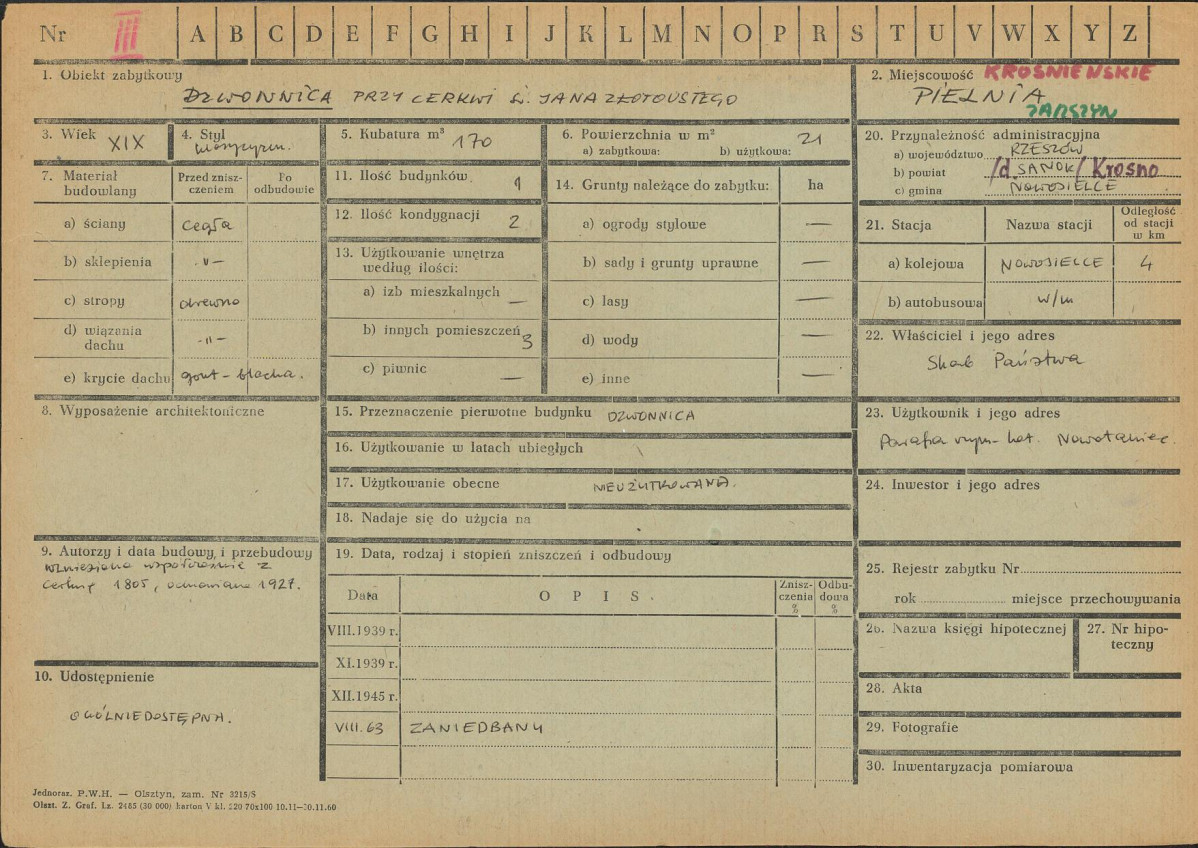 Nr III A B C D E F G H I J K L M N O P R S T U V W X Y Z
1. Obiekt zabytkowy
DZWONNICA PRZY CERKWI ŚW. JANA ZŁOTOUSTEGO
2. Miejscowość KROŚNIEŃSKIE
PIELNIA
ZARSZYN
3. Wiek XIX
4. Styl
klasycyzm.
5. Kubatura m³ 170
6. Powierzchnia w m²
a) zabytkowa: b) użytkowa: 21
7. Materiał budowlany
Przed zniszczeniem
Po odbudowie
a) ściany cegła
b) sklepienia -"-
c) stropy drewno
d) wiązania dachu -"-
e) krycie dachu gont - blacha.
8. Wyposażenie architektoniczne
9. Autorzy i data budowy i przebudowy
wzniesiona współcześnie z
cerkwią 1805, odnawiana 1927.
10. Udostępnienie
OGÓLNIEDOSTĘPNA.
11. Ilość budynków 1
12. Ilość kondygnacji 2
13. Użytkowanie wnętrza
według ilości:
a) izb mieszkalnych —
b) innych pomieszczeń 3
c) piwnic —
14. Grunty należące do zabytku: ha
a) ogrody stylowe —
b) sady i grunty uprawne —
c) lasy —
d) wody —
e) inne —
15. Przeznaczenie pierwotne budynku DZWONNICA
16. Użytkowanie w latach ubiegłych
17. Użytkowanie obecne NIEUŻYTKOWANA.
18. Nadaje się do użycia na
19. Data, rodzaj i stopień zniszczeń i odbudowy
Data O P I S . Zniszczenia % Odbudowa %
VIII.1939 r.
XI.1939 r.
XII.1945 r.
VIII.63 ZANIEDBANY
20. Przynależność administracyjna
a) województwo RZESZÓW
b) powiat /d. SANOK/ Krosno
c) gmina NOWOSIELCE
21. Stacja Nazwa stacji Odległość od stacji w km
a) kolejowa NOWOSIELCE 4
b) autobusowa w/m
22. Właściciel i jego adres
Skarb Państwa
23. Użytkownik i jego adres
Parafia rzym-kat. Nowotaniec.
24. Inwestor i jego adres
25. Rejestr zabytku Nr
rok miejsce przechowywania
26. Nazwa księgi hipotecznej
27. Nr hipoteczny
28. Akta
29. Fotografie
30. Inwentaryzacja pomiarowa
Jednoraz. P.W.H. — Olsztyn, zam. Nr 3215/S
Olszt. Z. Graf. Lz. 2485 (30 000) karton V kl. 220 70x100 10.11—30.11.60